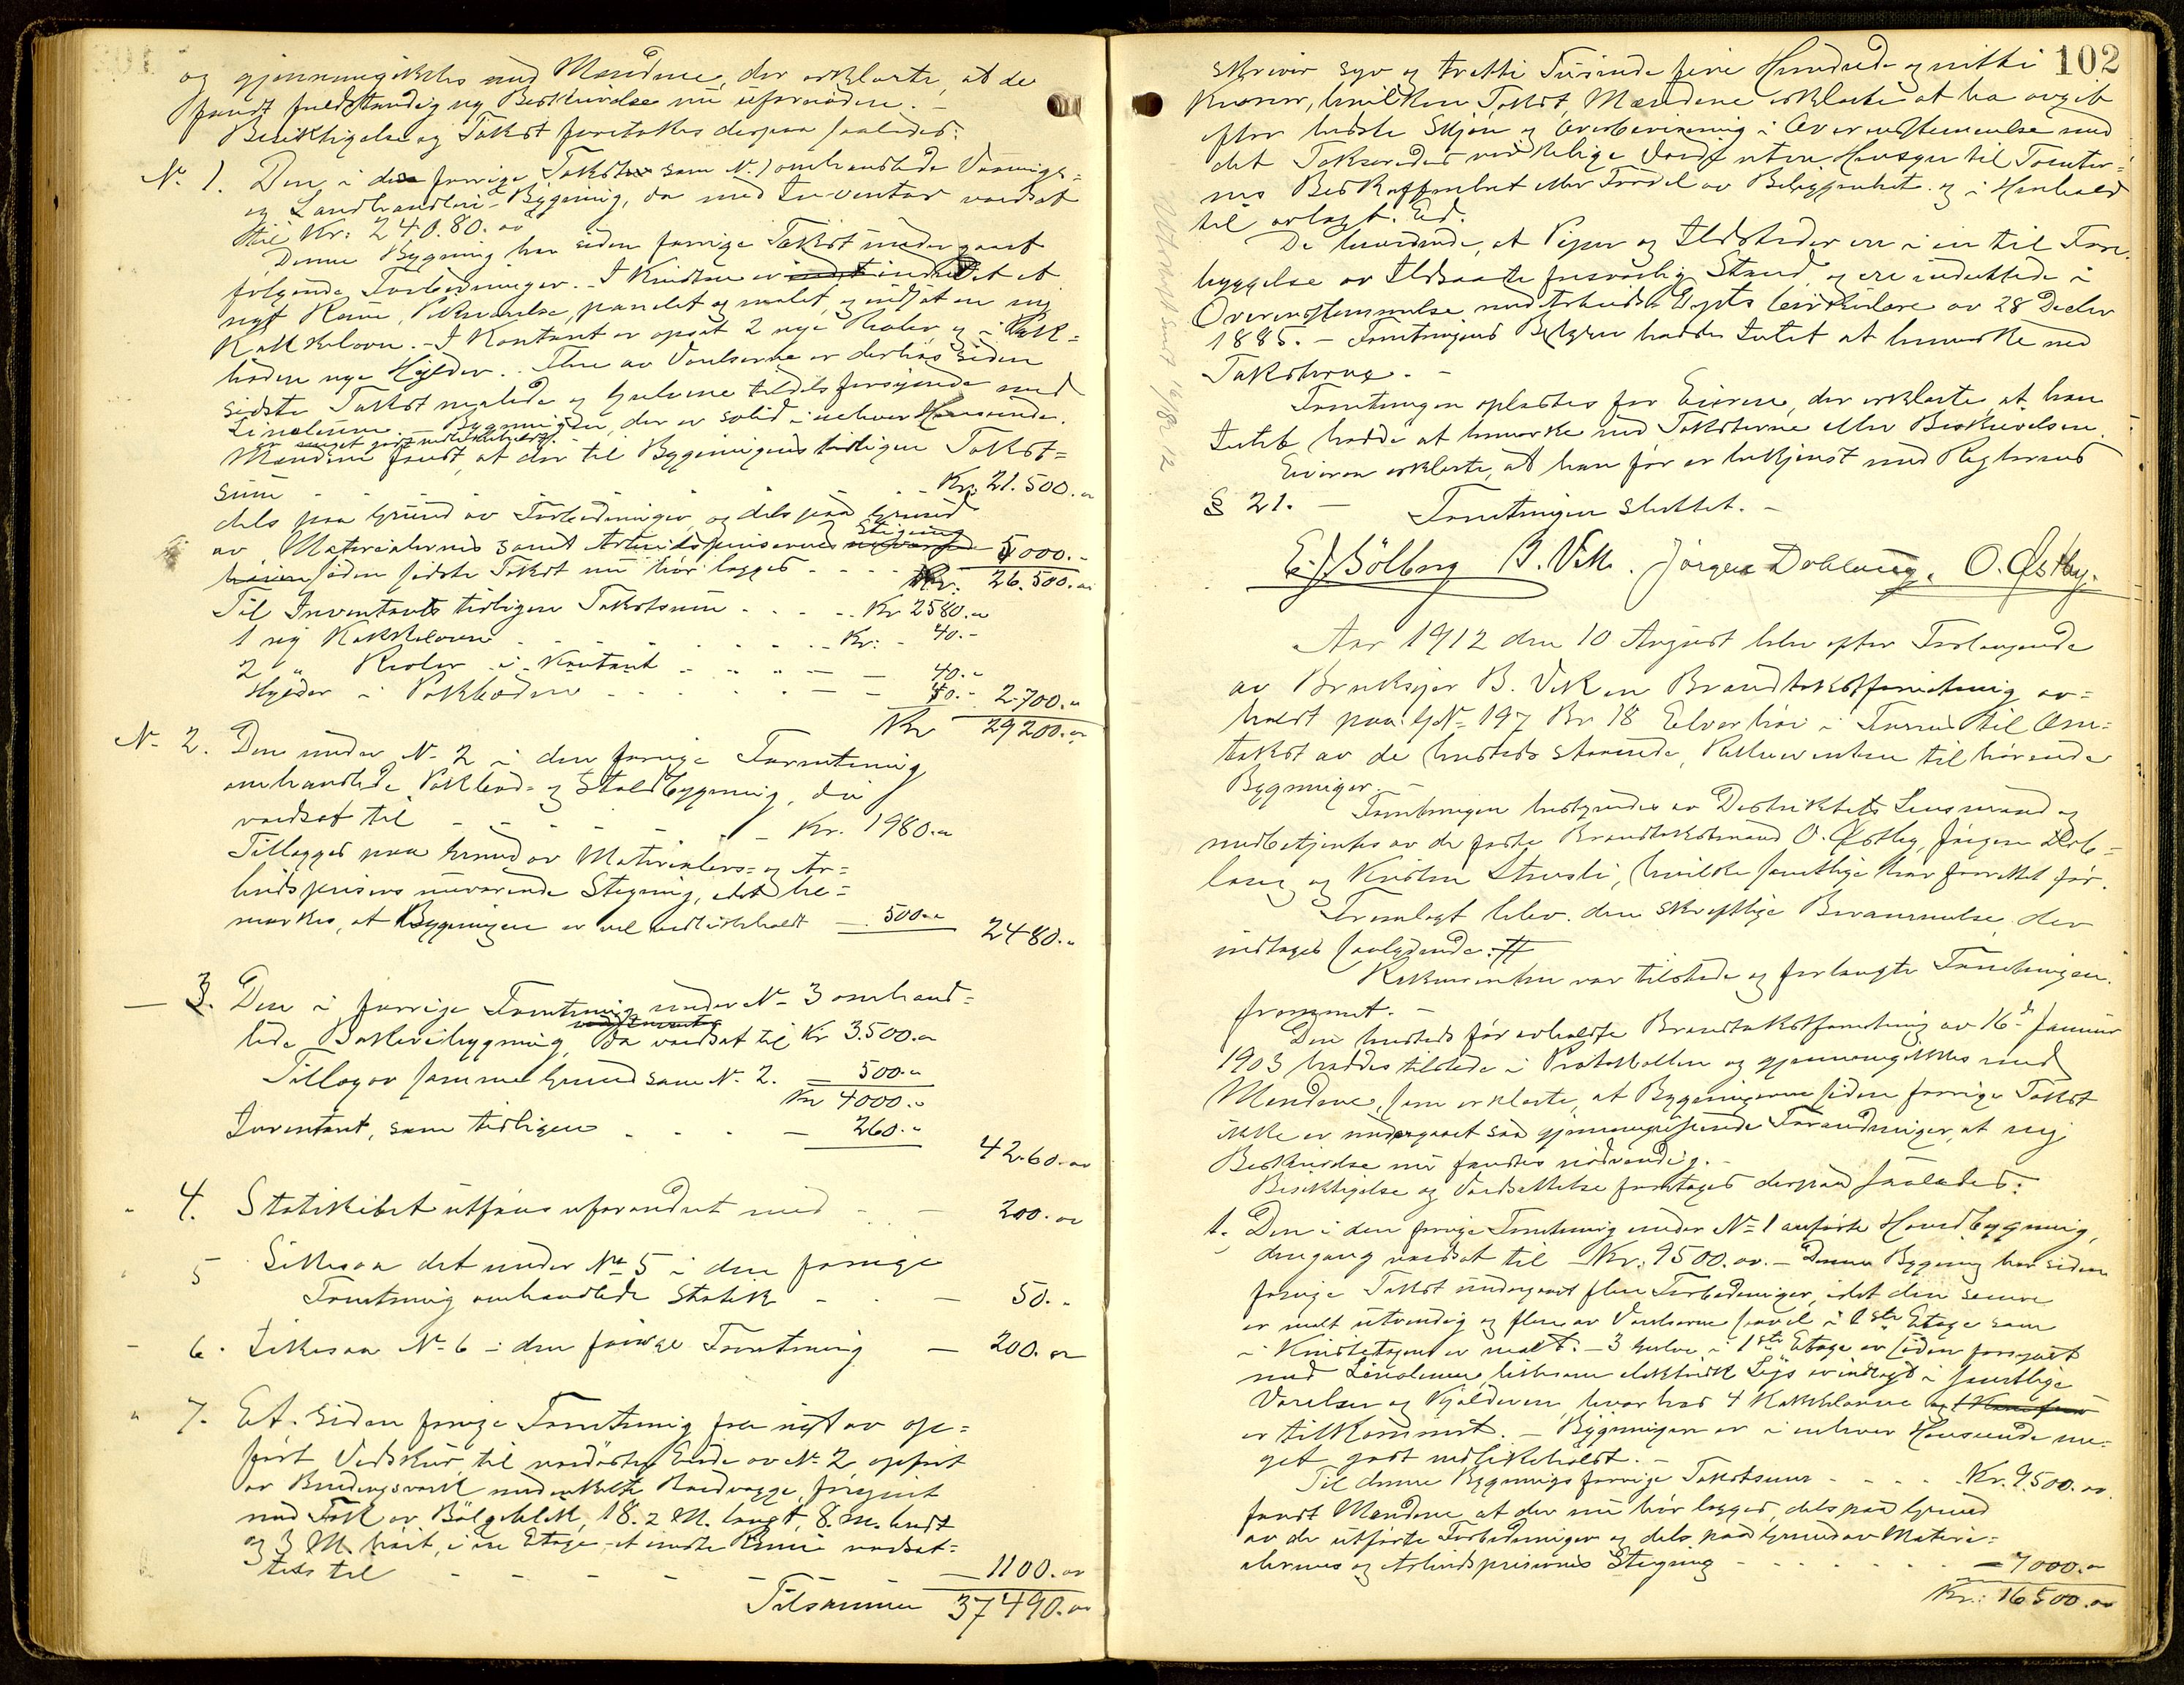 og gjennemgikkes med Mændene, der erklærte, at de
fandt fuldstændig ny Beskrivelse nu ufornøden. –
Besiktigelse og Takst foretakes derpaa saaledes:
No. 1. Den i den forrige Takst som No. 1 omhandlede Vaanings=
og Landhandleri-Bygning, da med Inventar værdsat
til Kr: 240.80.00
Denne Bygning har siden forrige Takst undergaaet
følgende Forbedringer. – I Kvisten er indredet et
nyt Rum, Pikeværelse, panelet og malet, og indsat en ny
Kakkelovn. – I Kontoret er opsat 2 nye Reoler og i Pak=
boden nye Hylder. Flere av Værelserne er derhos siden
sidste Takst malede og Gulvene tildels forsynede med
Linoleum. – Bygningen, der er solid i enhver Henseende,
er meget godt vedlikeholdt. –
Mændene fandt, at der til Bygningens tidligere Takst=
sum - - - - - Kr. 21.500.00
dels paa Grund av Forbedringer og dels paa Grund
av Materialernes samt Arbeidsprisernes Stigning
siden sidste Takst nu bør lægges - - - - 5000.-
Kr. 26.500.00
Til Inventarets tidligere Takstsum - - - - Kr 2580.00
1 ny Kakkelovn - - - - Kr: - 40.-
2 " Reoler i Kontoret - - - - 40.-
Hylder i Pakboden - - - - 40.- 2.700.00
Kr 29200.00
No. 2. Den under No. 2 i den forrige Forretning
omhandlede Pakbod- og Staldbygning, da
værdsat til - - - - Kr. 1980.00
Tillægges paa Grund av Materialers- og Ar=
beidsprisers nuværende Stigning, idet be=
merkes, at Bygningen er vel vedlikeholdt — 500.00 2480.00
— 3. Den i forrige Forretning under No. 3 omhand=
lede Bakeribygning, da værdsat til Kr 3.500.00
Tillæg av samme Grund som No. 2. 500.00
Kr 4000.00
Inventaret, som tidligere - - - — 260.00
4260.00
" 4. Stakittet utføres uforandret med - — 200.00
" 5 Likesaa det under No. 5 i den forrige
Forretning omhandlede Stakit - - — 50.-
- 6. Likesaa No. 6 i den forrige Forretning — 200.00
" 7. Et siden forrige Forretning fra nyt av op=
ført Vedskur, til nordøstre Ende av No. 2, opført
av Bindingsverk med enkelte Bordvægge, forsynet
med Tak av Bølgeblik, 18.2 M. langt, 8. M. bredt
og 3 M. høit, i en Etage, et enkelt Rum værdsat=
tes til - - - - - — 1100.00
Tilsammen 37490.00
102
skriver syv og tretti Tusinde fire Hundrede og nitti
Kroner, hvilken Takst Mændene erklærte at ha avgit
efter bedste Skjøn og Overbevisning i Overensstemmelse med
det Takseredes virkelige Værdi uten Hensyn til Tomter=
nes Beskaffenhet eller Fordel av Beliggenhet og i Henhold
til avlagt Ed.
De bevidnede, at Piper og Ildsteder er i en til Fore=
byggelse av Ildsvaade forsvarlig Stand og er indrettede i
Overensstemmelse med Arbeids Dpts Cirkulære av 28 Decbr
1885. – Forretningens Bestyrer hadde Intet at bemerke ved
Taksterne. –
Forretningen oplæstes for Eieren, der erklærte, at han
Intet hadde at bemerke ved Taksterne eller Beskrivelsen.
Eieren erklærte, at han før er bekjendt med Reglernes
§ 21. — Forretningen sluttet. –
E. J. Sölberg B. Vik. Jörgen Doblaug. O. Østby.
Aar 1912 den 10 August blev efter Forlangende
av Brukseier B. Vik en Brandtakstforretning av=
holdt paa GNo. 197 Br 18 Elverhøi i Furnes til Om=
takst av de besteds staaende, Rekvirenten tilhørende
Bygninger. –
Forretningen bestyredes av Distriktets Lensmand og
medbetjentes av de faste Brandtakstmænd O. Østby, Jørgen Dob=
laug og Kristen Struksli, hvilke samtlige har forrettet før.
Fremlagt blev den skriftlige Berammelse, der
indtages saalydende: #
Rekvirenten var tilstede og forlangte Forretningen
fremmet. –
Den besteds før avholdte Brandtakstforretning av 16de Januar
1903 haddes tilstede i Protokollen og gjennemgikkes med
Mændene, som erklærte, at Bygningerne siden forrige Takst
ikke er undergaaet saa gjennemgripende Forandringer, at ny
Beskrivelse nu fandtes nødvendig. –
Besiktigelse og Værdsættelse foretages derpaa saaledes:
1. Den i den forrige Forretning under No. 1 anførte Hovedbygning,
dengang værdsat til Kr: 9500.00. – Denne Bygning har siden
forrige Takst undergaaet flere Forbedringer, idet den senere
er malt utvendig og flere av Værelserne saavel i 1ste Etage som
i Kvistetagen er malt. – 3 Gulve i 1ste Etage er siden forsynet
med Linoleum, likesom elektrisk Lys er indlagt i samtlige
Værelser og Kjælderen, hvorhos 4 Kakkelovne
er tilkommet. – Bygningen er i enhver Henseende me=
get godt vedlikeholdt. –
Til denne Bygnings forrige Takstsum - - - - Kr. 9.500.00
fandt Mændene at der nu bør lægges, dels paa Grund
av de utførte Forbedringer og dels paa Grund av Materi=
alernes og Arbeidsprisernes Stigning - - - - — 7000.00
Kr.: 16500.00